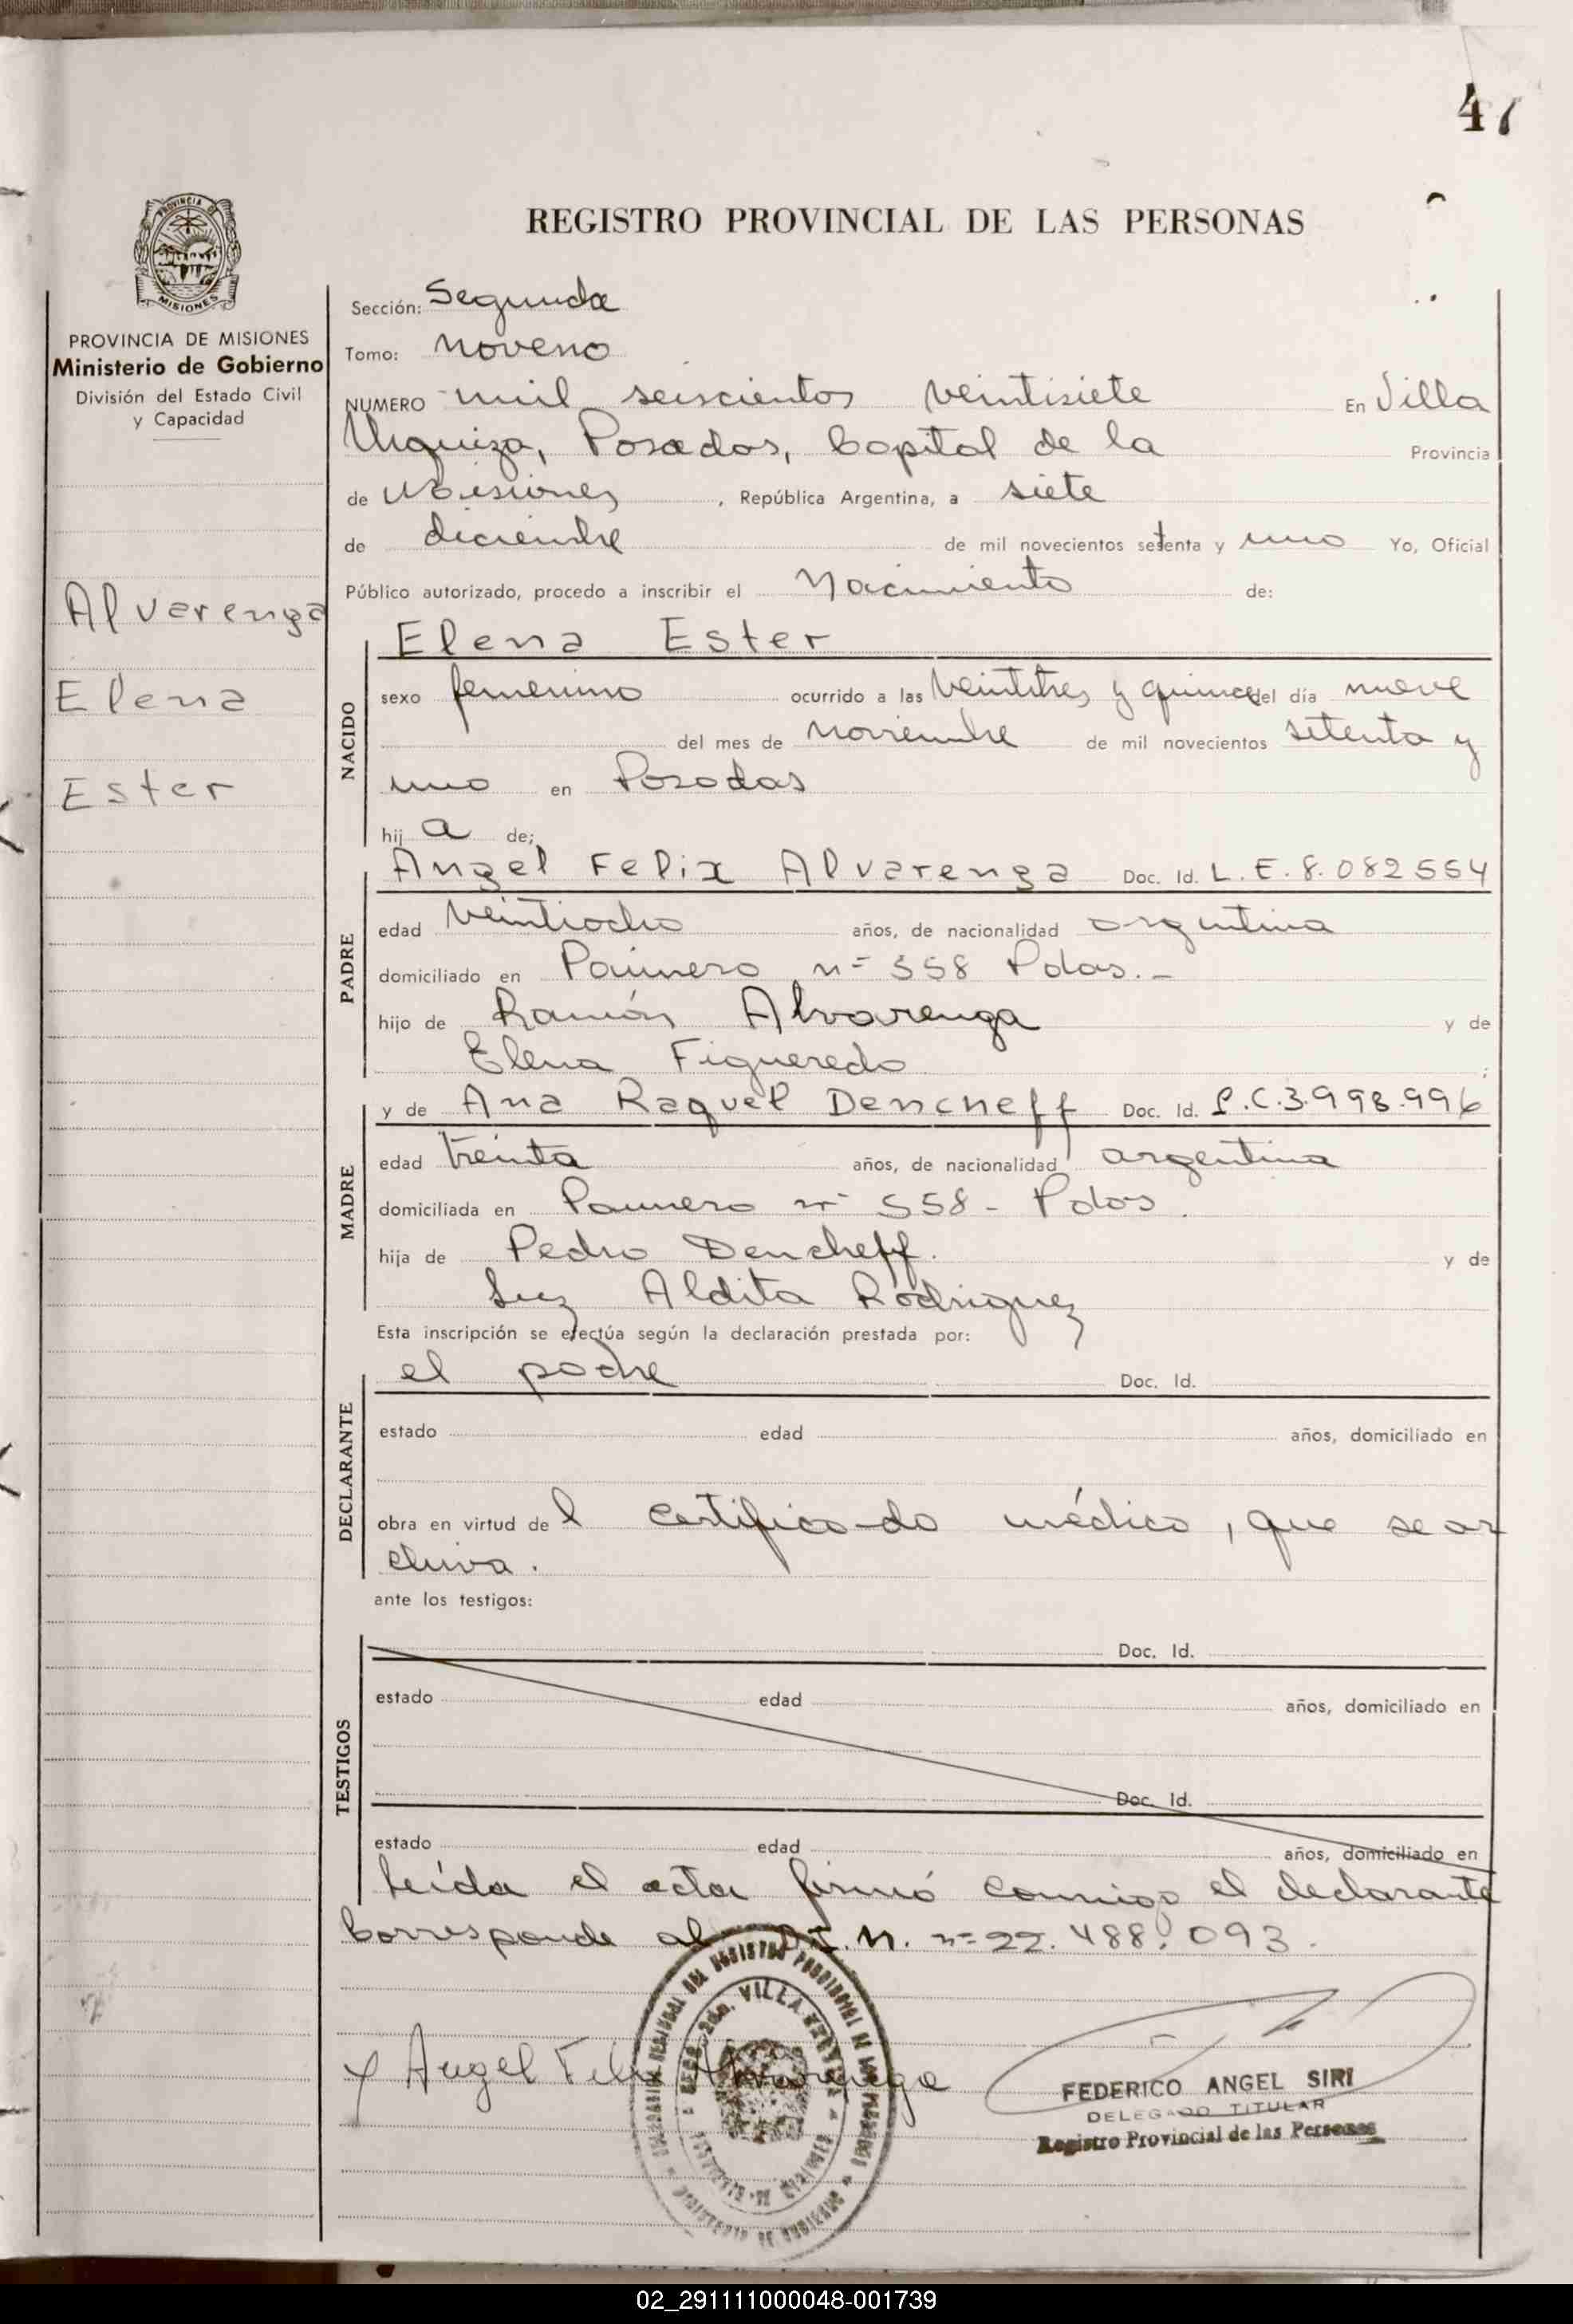 47
PROVINCIA DE
MISIONES
PROVINCIA DE MISIONES
Ministerio de Gobierno
División del Estado Civil
y Capacidad
Alvarenga
Elena
Ester
REGISTRO PROVINCIAL DE LAS PERSONAS
Sección: Segunda
Tomo: Noveno
NUMERO mil seiscientos veintisiete En Villa
Urquiza, Posadas, Capital de la Provincia
de Misiones, República Argentina, a siete
de diciembre de mil novecientos setenta y uno Yo, Oficial
Público autorizado, procedo a inscribir el Nacimiento de:
NACIDO
Elena Ester
sexo femenino ocurrido a las veintitres y quince del día nueve
del mes de noviembre de mil novecientos setenta y
uno en Posadas
hij a de;
PADRE
Angel Felix Alvarenga Doc. Id. L.E. 8.082554
edad veintiocho años, de nacionalidad argentina
domiciliado en Paunero nº 558 Pdas.-
hijo de Ramón Alvarenga y de
Elena Figueredo ;
MADRE
y de Ana Raquel Dencheff Doc. Id. L.C.3.998.996
edad treinta años, de nacionalidad argentina
domiciliada en Paunero nº 558 - Pdas.
hija de Pedro Dencheff. y de
Luz Aldita Rodriguez
Esta inscripción se efectúa según la declaración prestada por:
DECLARANTE
el padre Doc. Id.
estado edad años, domiciliado en
obra en virtud de l certificado médico, que se ar
chiva.
ante los testigos:
TESTIGOS
Doc. Id.
estado edad años, domiciliado en
Doc. Id.
estado edad años, domiciliado en
Leída el acta firmó conmigo el declarante
Corresponde al D.N. nº 22.488.093.
x Angel Felix Alvarenga
VILLA URQUIZA
MINISTERIO DE GOBIERNO
FEDERICO ANGEL SIRI
DELEGADO TITULAR
Registro Provincial de las Personas
02_291111000048-001739